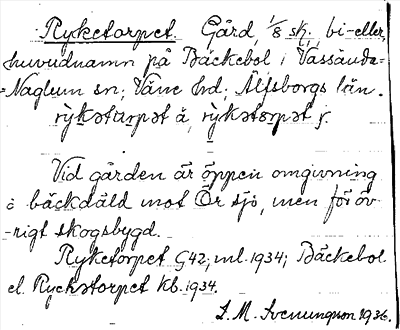 Ryketorpet. Gård, 1/8 sk, bi- eller
huvudnamn på Bäckebol i Vassända-
-Naglum sn; Väne hd; Älfsborgs län.
rỳkətårpət å, rỳkətørpət f.
Vid gården är öppen omgivning
å bäckdäld mot Ör sjö, men för öv-
-rigt skogsbygd.
Ryketorpet G42, ml. 1934; Bäckebol
el. Ryckatorpet kb. 1934.
S. M. Svenungson 1936.